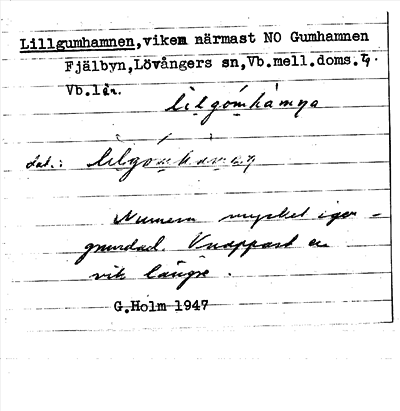 Lillgumhamnen,viken närmast NO Gumhamnen
Fjälbyn,Lövångers sn,Vb.mell.doms.tg.
Vb.län.
Lilgómhamna
dat.: lilgómhamna
Numera mycket igen-
grundad. Knappast en
vik längre.
G.Holm 1947